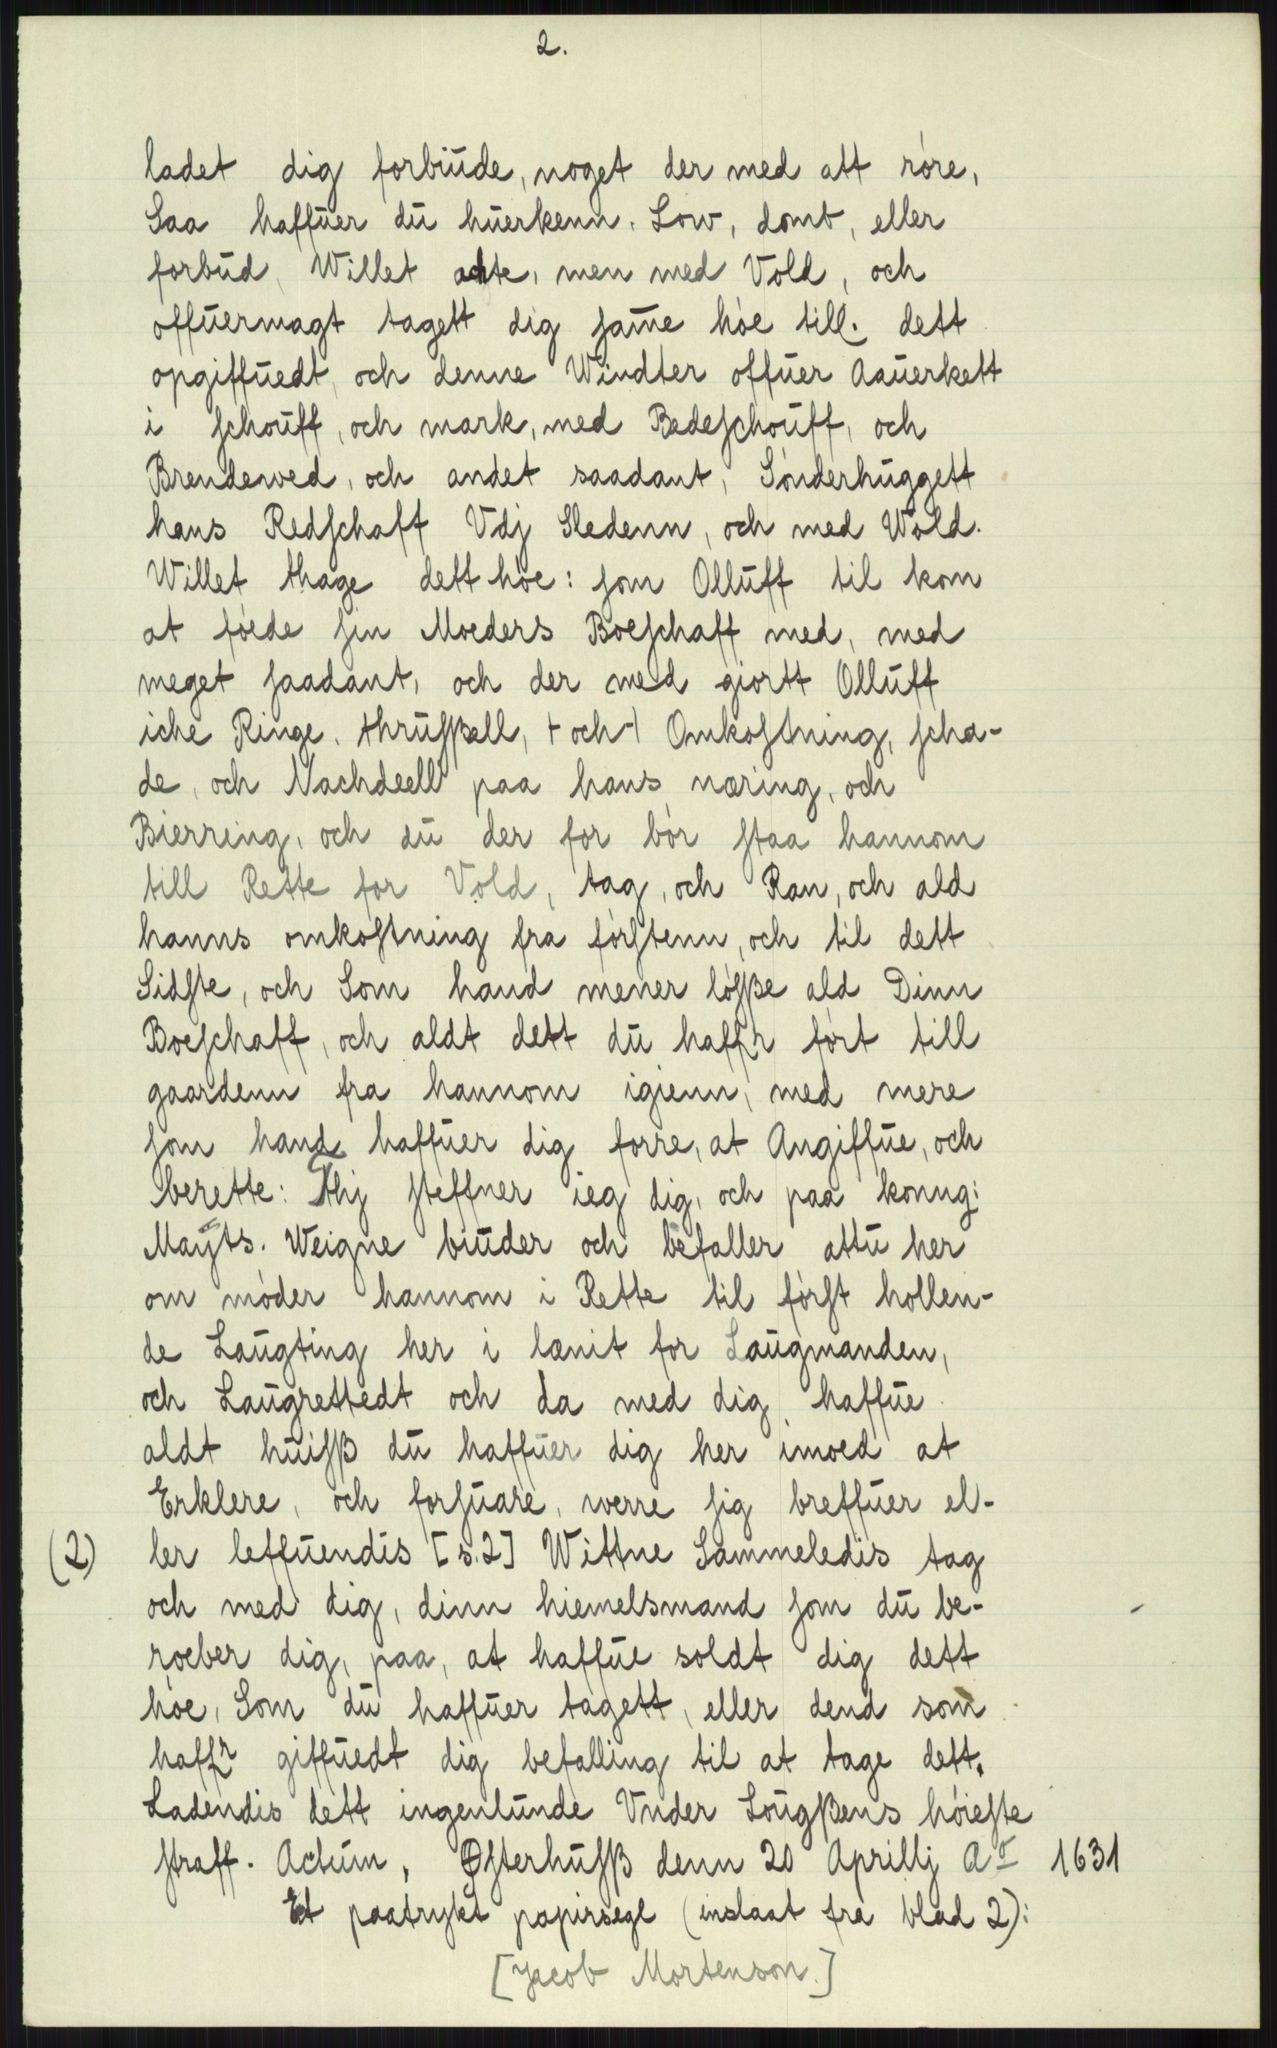 2.
ladet dig forbiude, noget der med att røre,
Saa haffuer du huerkenn. Low, domb, eller
forbud, Willet achte, men med Vold, och
offuermagt tagett dig same høe till. dett
opgiffuedt, och denne Windter offuer Aauerkett
i schouff, och mark, med Bedeschouff, och
Brendewed, och andet saadant, Sønderhuggett
hans Redschaff Vdj Sledenn, och med Wold.
Willet thage dett høe: som Olluff til kom
at føede sin Moeders Boeschaff med, med
meget saadant, och der med giortt Olluff
iche Ringe. thrusßell, + och + Omkostning, scha-
de, och Nachdeell paa hans næring, och
Bierring, och du der for bør staa hannom
till Rette for Vold, tag, och Ran, och ald
hanns omkostning fra førstenn, och til dett
Sidste, och Som hand mener løsße ald Dinn
Boeschaff, och aldt dett du haffr ført till
gaardenn fra hannom igienn, med mere
som hand haffuer dig forre, at Angiffue, och
berette: Thj steffner ieg dig, och paa konng:
Mayts. Weigne biuder och befaller attu her
om møder hannom i Rette til først hollen-
de Laugting her i lænit for Laugmanden,
och Laugrettedt och da med dig haffue
aldt huisß du haffuer dig her imoed at
Erklere, och forsuare, werre sig breffuer el-
(2) ler leffuendis [s.2] Wittne Sammeledis tag
och med dig, dinn hiemelsmand som du be-
roeber dig, paa, at haffue soldt dig dett
høe, Som du haffuer tagett, eller dend som
haffr giffuedt dig befalling til at tage dett.
Ladendis dett ingenlunde Vnder Lougßens høieste
straff. Actum, Østerhusß denn 20 Aprillj Ao 1631
Et paatrykt papirsegl (inslaat fra blad 2):
[Jacob Mortenson.]